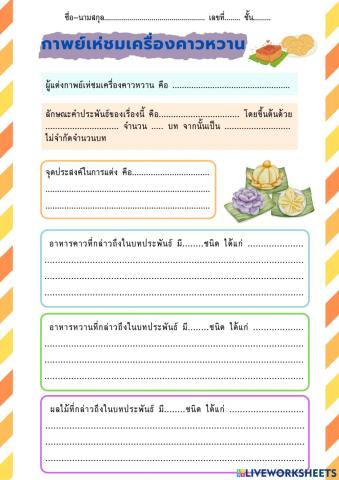 ชื่อ-นามสกุล............................................ เลขที่....... ชั้น........
กาพย์เห่ชมเครื่องคาวหวาน
ผู้แต่งกาพย์เห่ชมเครื่องคาวหวาน คือ ..........................................
ลักษณะคำประพันธ์ของเรื่องนี้ คือ............................. โดยขึ้นต้นด้วย
.......................... จำนวน ..... บท จากนั้นเป็น ........................
ไม่จำกัดจำนวนบท
จุดประสงค์ในการแต่ง คือ............................
............................................................
............................................................
อาหารคาวที่กล่าวถึงในบทประพันธ์ มี........ชนิด ได้แก่ ....................
..........................................................................................
..........................................................................................
..........................................................................................
อาหารหวานที่กล่าวถึงในบทประพันธ์ มี........ชนิด ได้แก่ ..................
..........................................................................................
..........................................................................................
..........................................................................................
ผลไม้ที่กล่าวถึงในบทประพันธ์ มี........ชนิด ได้แก่ ...........................
..........................................................................................
..........................................................................................
..........................................................................................
LIVEWORKSHEETS